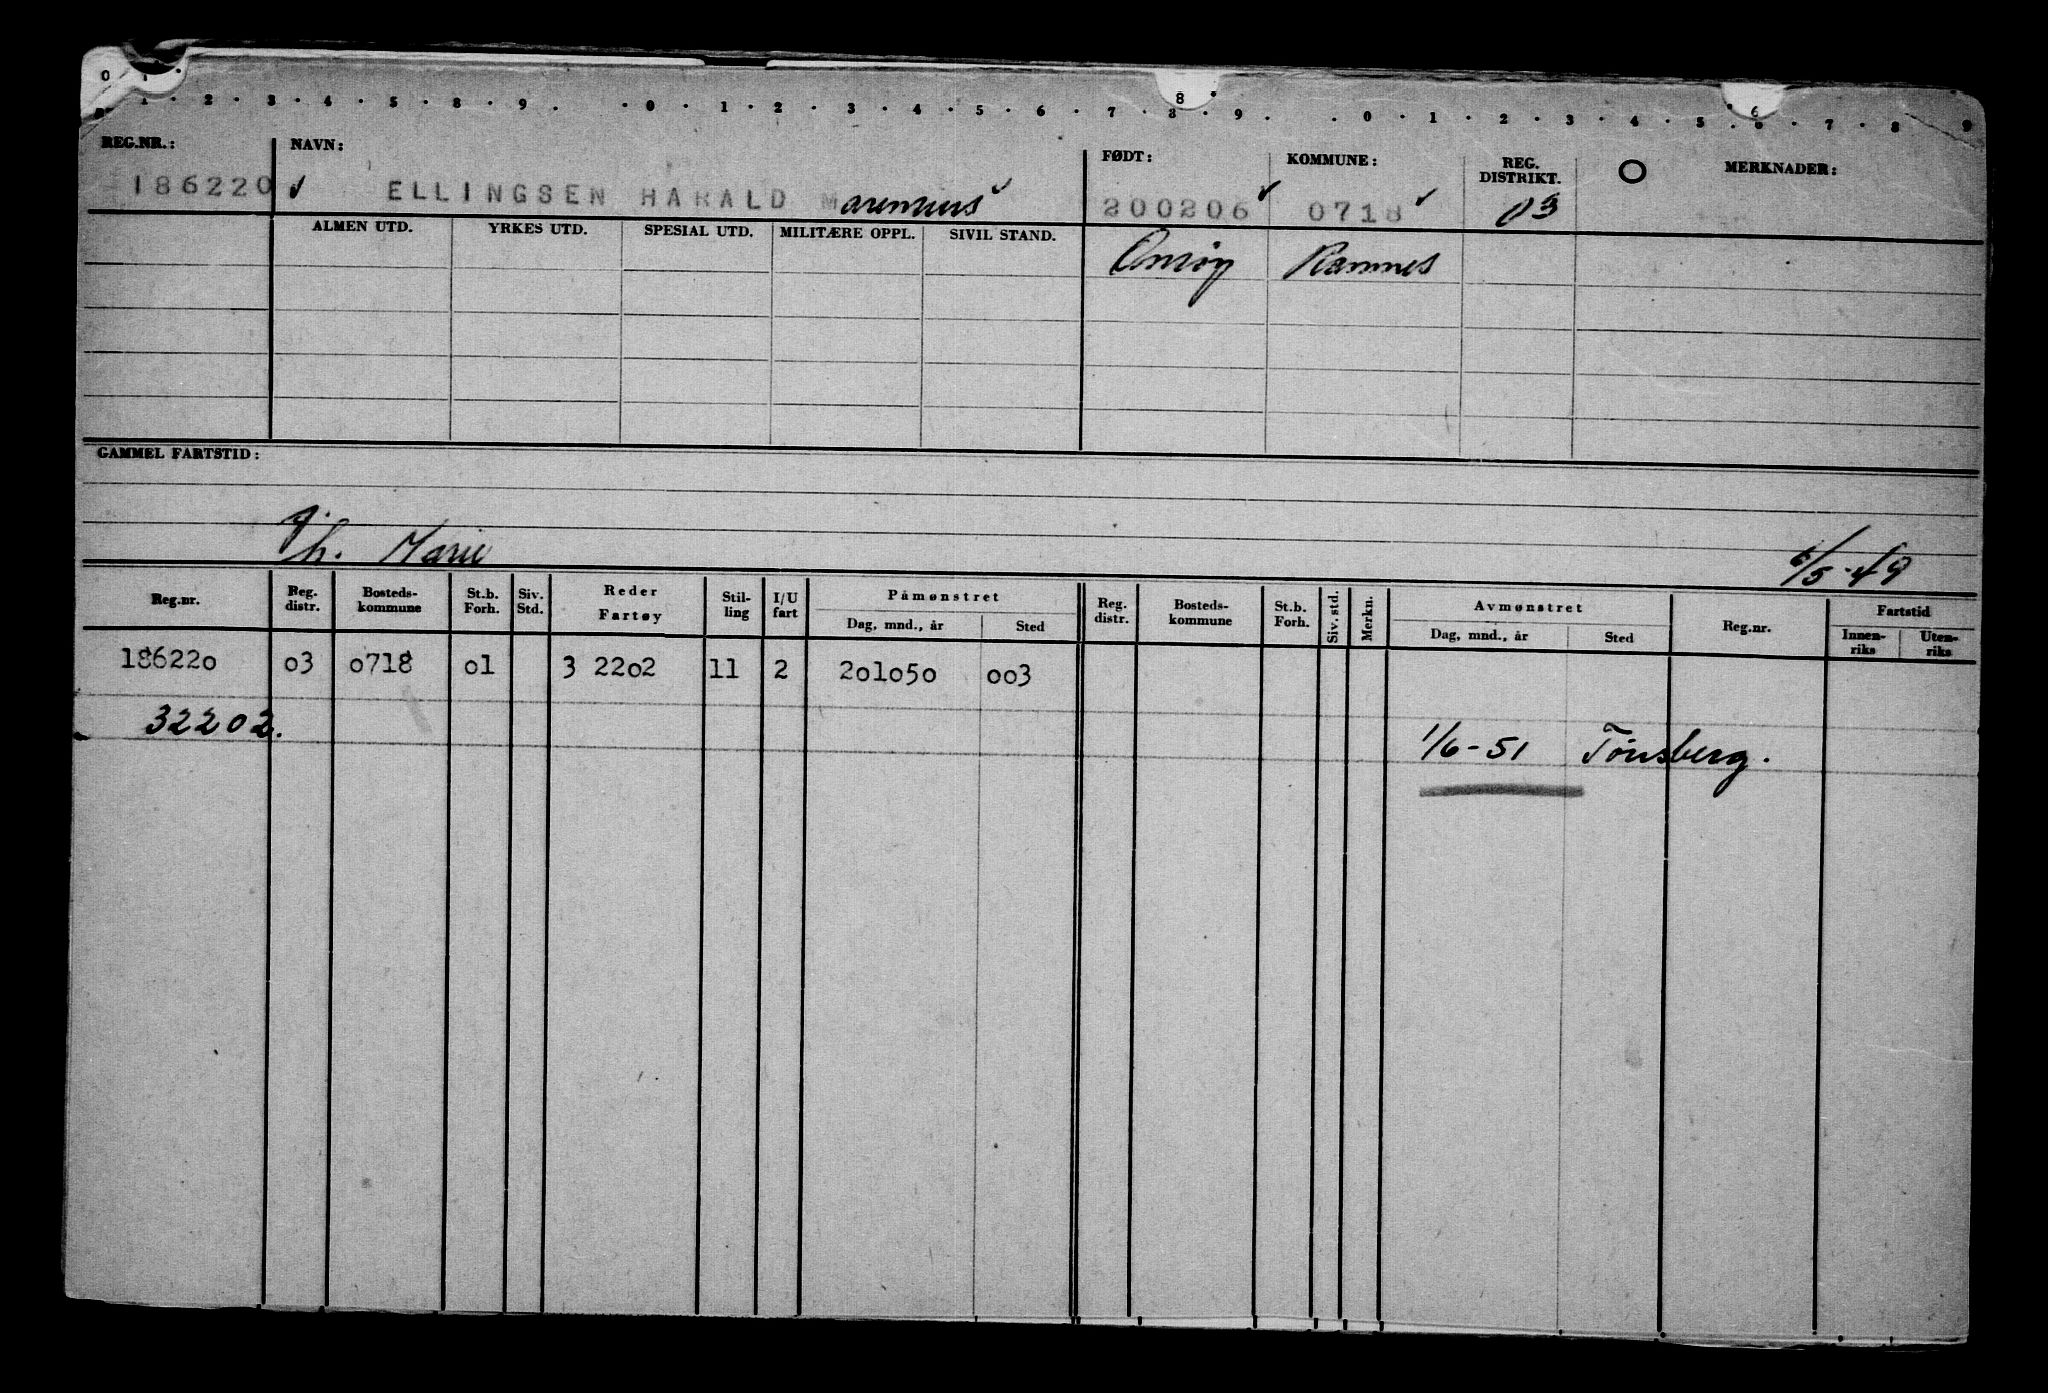 0 1
1 · 2 · 3 · 4 · 5 · 8 · 9 · · 0 · 1 · 2 · 3 · 4 · 5 · 6 · 7 · 8 · 9 · · 0 · 1 · 2 · 3 · 4 · 5 · 6 · 7 · 8 · 9
8 6
REG.NR.: NAVN: FØDT: KOMMUNE: REG. DISTRIKT. O MERKNADER:
186220 ELLINGSEN HARALD Marenius 200206 0718 03
ALMEN UTD. YRKES UTD. SPESIAL UTD. MILITÆRE OPPL. SIVIL STAND. Onsøy Ramnes
GAMMEL FARTSTID:
gh. Marie 6/5-49
Reg.nr. Reg. distr. Bosteds- kommune St.b. Forh. Siv. Std. Reder Fartøy Stil- ling I/U fart Påmønstret Dag, mnd., år Sted Reg. distr. Bosteds- kommune St.b. Forh. Siv. std. Merkn. Avmønstret Dag, mnd., år Sted Reg.nr. Fartstid Innen- riks Uten- riks
186220 03 0718 01 3 2202 11 2 201050 003
32202. 1/6-51 Tønsberg.